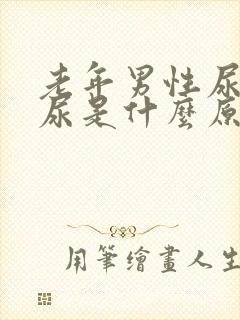 老年男性尿
尿是什麼原
用筆繪畫人生